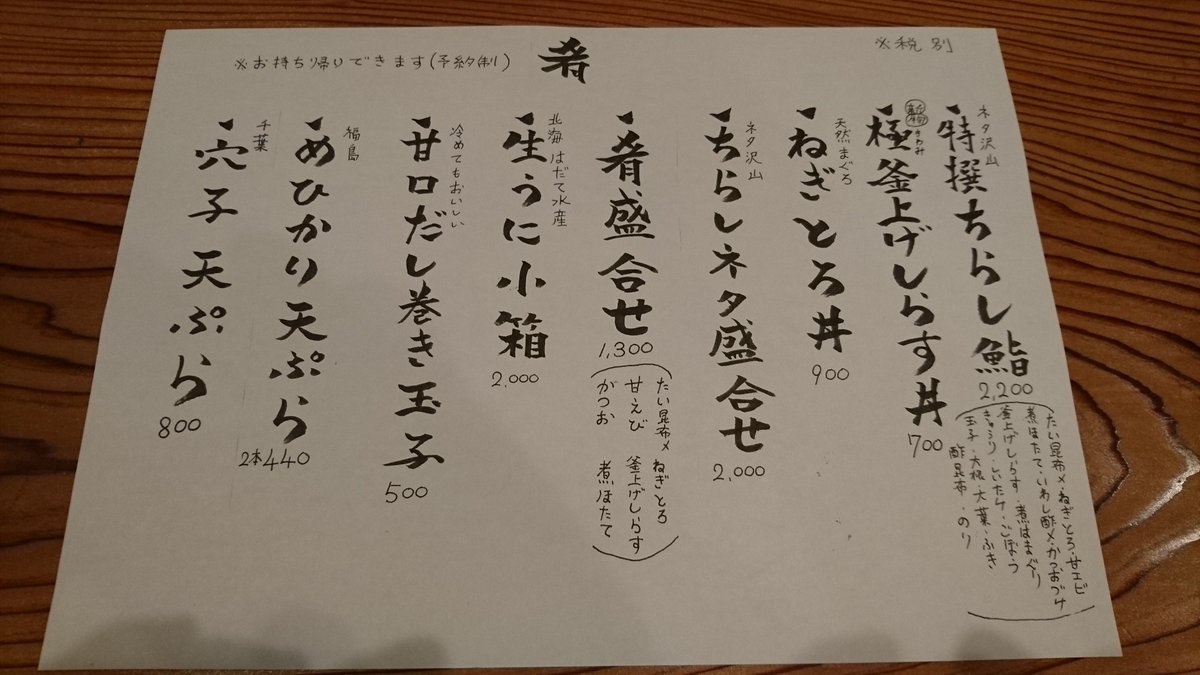 肴
※お持ち帰りできます(予約制)
※税別
ネタ沢山
・特撰ちらし鮨
2,200
(たい昆布〆・ねぎとろ・甘エビ
煮ほたて・いわし酢〆・かつおづけ
釜上げしらす・煮はまぐり
きゅうり・しいたけ・ごぼう
玉子・大根・大葉・ふき
酢昆布・のり)
新物
きわみ
・極釜上げしらす丼
700
天然まぐろ
・ねぎとろ丼
900
ネタ沢山
・ちらしネタ盛合せ
2,000
・肴盛合せ
1,300
(たい昆布〆 ねぎとろ
甘えび 釜上げしらす
がつお 煮ほたて)
北海 はだて水産
・生うに小箱
2,000
冷めてもおいしい
・甘口だし巻き玉子
500
福島
・めひかり天ぷら
2本440
千葉
・穴子天ぷら
800